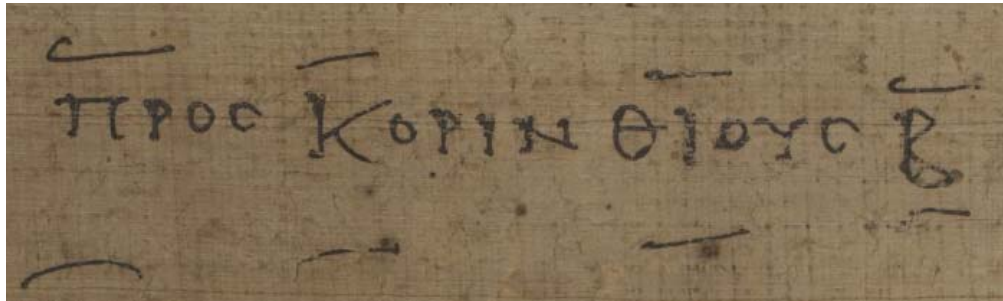 ΠΡΟϹ ΚΟΡΙΝΘΙΟΥϹ Β